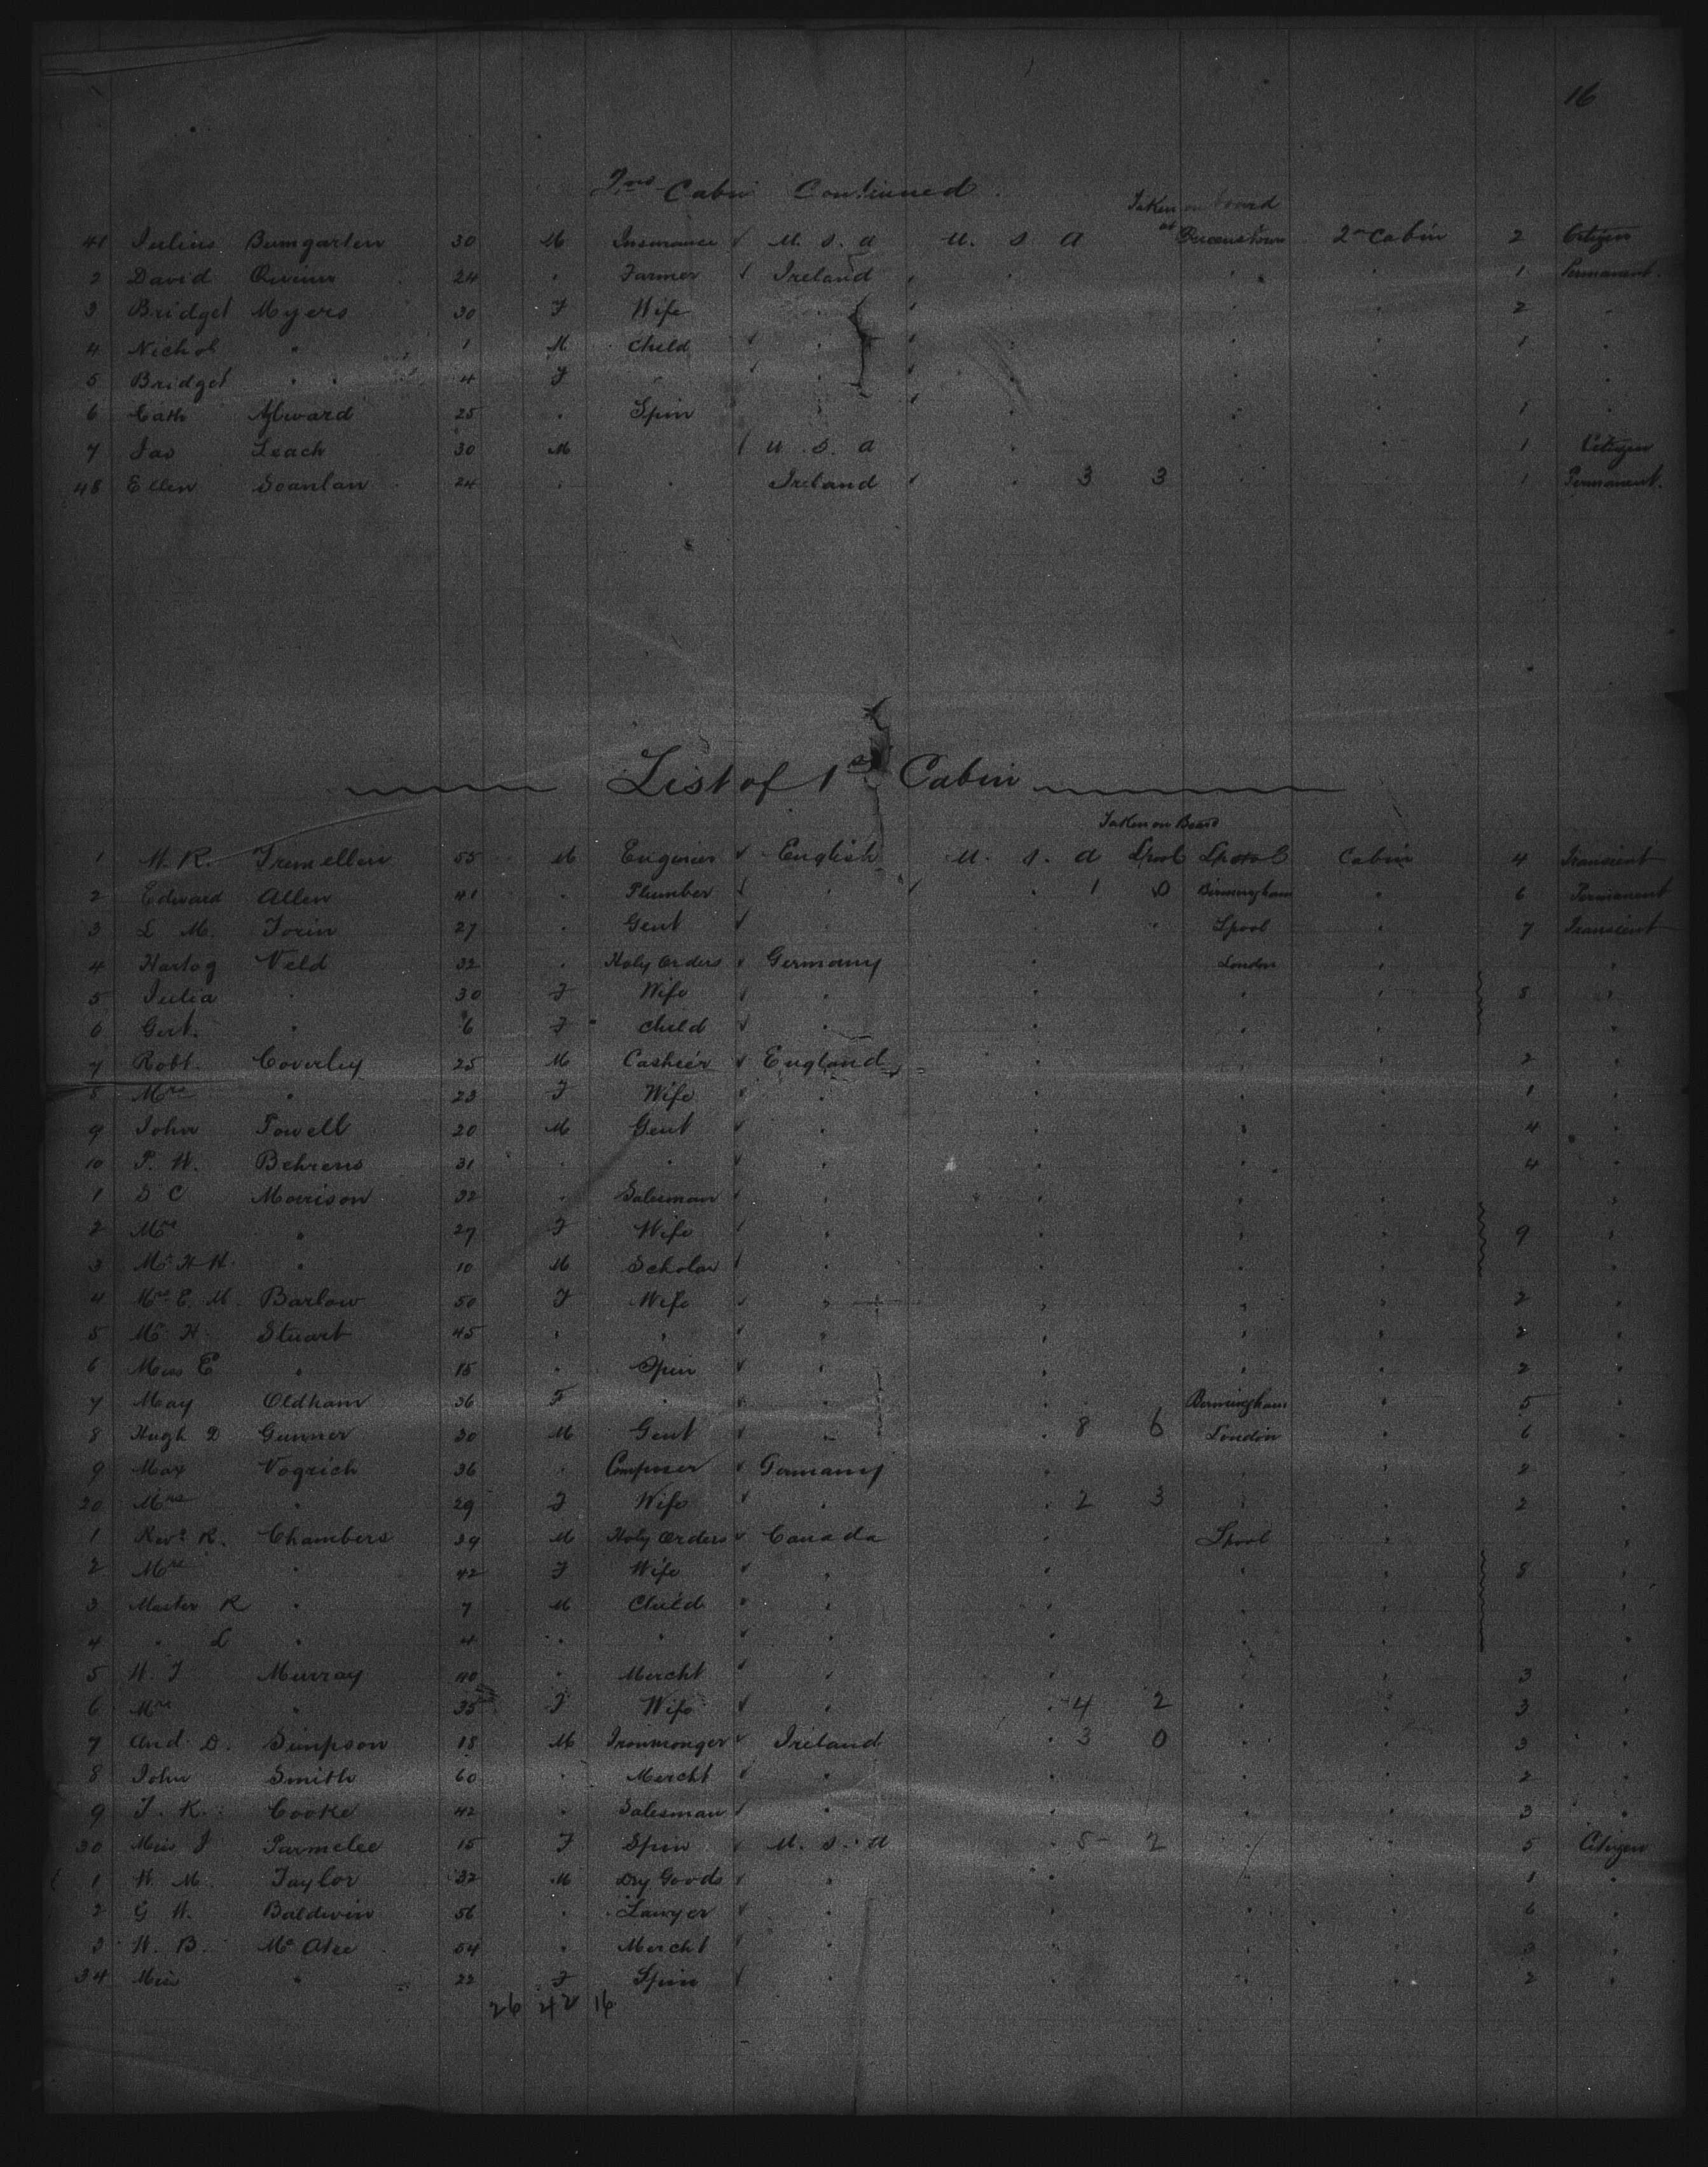 16
2nd Cabin Continued
Taken on board
41 Julius Bumgarten 30 M Insurance ✓ U. S. A U. S A at Queenstown 2nd Cabin 2 Citizen
2 David 24 " Farmer ✓ Ireland " " " " 1 Permanent.
3 Bridget Myers 30 F Wife " " " 2 "
4 Nichol " 1 M Child ✓ " " " " 1 "
5 Bridget " 4 F " " " " "
6 Cath Aylward 25 " Spin " " " " 1 "
7 Jas Leach 30 M U. S. A " " 1 Citizen
48 Ellen Scanlan 24 " " Ireland " 3 3 " " 1 Permanent.
List of 1st Cabin
Taken on Board
1 W. R. Tremellen 55 M Engineer ✓ English U. S. A Lpool Lpool Cabin 4 Transient
2 Edward Allen 41 " Plumber ✓ " " 1 0 Birmingham " 6 Permanent
3 L M. Torin 27 " Gent ✓ " " " Lpool " 7 Transient
4 Hartog Veld 32 " Holy Orders ✓ Germany " London " "
5 Julia " 30 F Wife ✓ " " " " 8 "
6 Gert. " 6 F Child ✓ " " " " "
7 Robt. Coverley 25 M Cashier ✓ England " " " 2 "
8 Mrs " 23 F Wife ✓ " " " " 1 "
9 John Powell 20 M Gent ✓ " " " " 4 "
10 P. W. Behrens 31 " " ✓ " " " " 4 "
1 S C Morrison 32 " Salesman ✓ " " " " "
2 Mrs " 27 F Wife ✓ " " " " 9 "
3 Mr H H. " 10 M Scholar ✓ " " " " "
4 Mrs E. M. Barlow 50 F Wife ✓ " " " " 2 "
5 Mrs H. Stuart 45 " " ✓ " " " " 2 "
6 Miss E " 15 " Spin ✓ " " " " 2 "
7 May Oldham 36 F " ✓ " " Birmingham " 5 "
8 Hugh D Gunner 30 M Gent ✓ " " 8 6 London " 6 "
9 Max Vogrich 36 " Composer ✓ Germany " " " 2 "
20 Mrs " 29 F Wife ✓ " " 2 3 " " 2 "
1 Revd R. Chambers 39 M Holy Orders ✓ Canada " Lpool " "
2 Mrs " 42 F Wife ✓ " " " " 8 "
3 Master R " 7 M Child ✓ " " " " "
4 " L " 4 " " ✓ " " " " "
5 W. J Murray 40 " Mercht ✓ " " " " 3 "
6 Mrs " 35 F Wife ✓ " " 4 2 " " 3 "
7 And. D. Simpson 18 M Ironmonger ✓ Ireland " 3 0 " " 3 "
8 John Smith 60 " Mercht ✓ " " " " 2 "
9 J. K. Cooke 42 " Salesman ✓ " " " " 3 "
30 Miss J Parmelee 15 F Spin ✓ U. S. A " 5 2 " " 5 Citizen
1 W. M. Taylor 32 M Dry Goods ✓ " " " " 1 "
2 G W. Baldwin 56 " Lawyer ✓ " " " " 6 "
3 W. B. 54 " Mercht ✓ " " " " 3 "
34 Miss " 22 F Spin ✓ " " " " 2 "
26 42 16